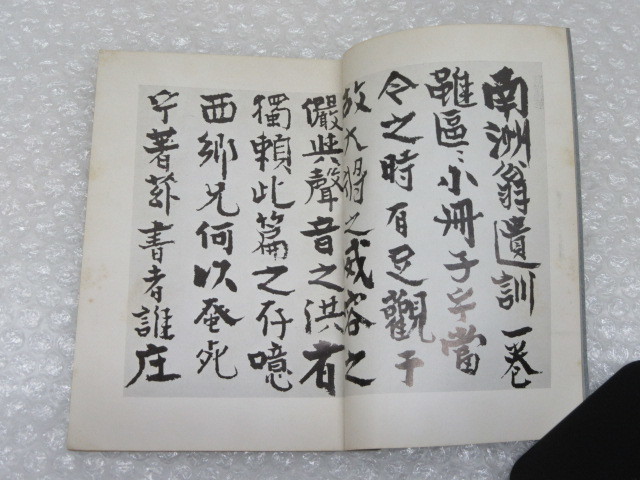 南洲翁遺訓一巻
雖區〻小冊子于當
今之時有足觀于
故大将之威容之
儼與聲音之洪者
獨賴此篇之存噫
西郷兄何以蚤死
乎著茲書者誰庄